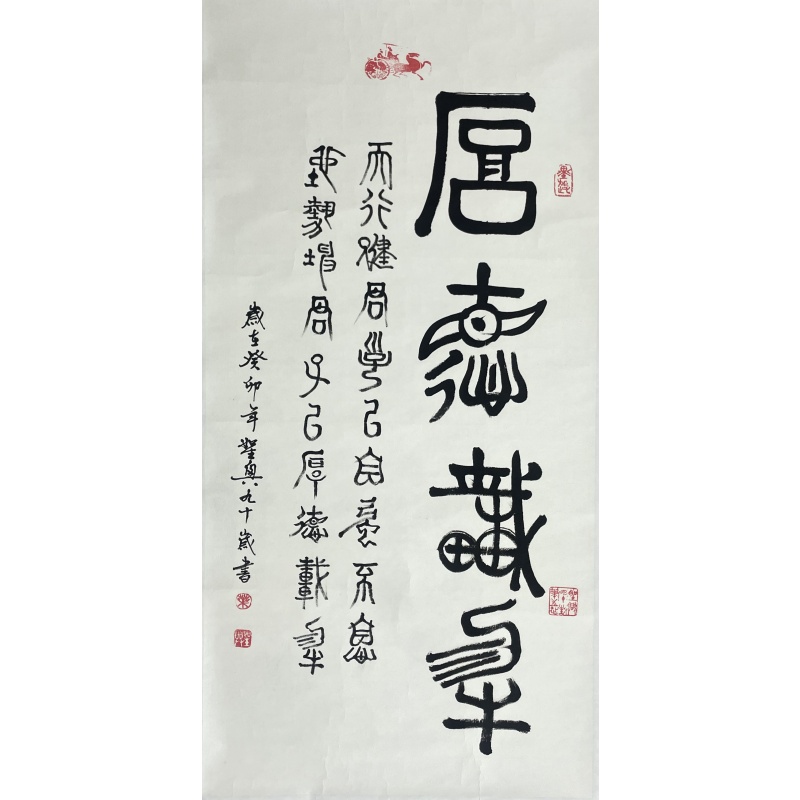 厚德載物
天行健君子以自強不息
地勢坤君子以厚德載物
歲在癸卯年聖輿九十歲書